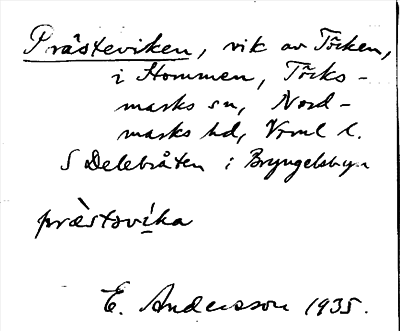 Prästeviken, vik av Töcken,
i Hommen, Töcks-
marks sn, Nord-
marks hd, Vrml l.
S Delebråten i Bryngelsbyn
præ̀stəvi̇́ka
E. Andersson 1935.